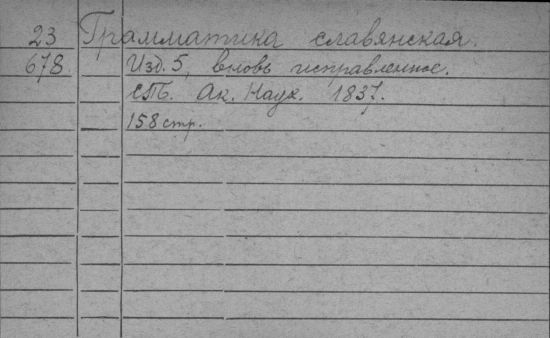 23 Грамматика славянская.
678 Изд. 5, вновь исправленное.
СПб. Ак. Наук. 1837.
158 стр.